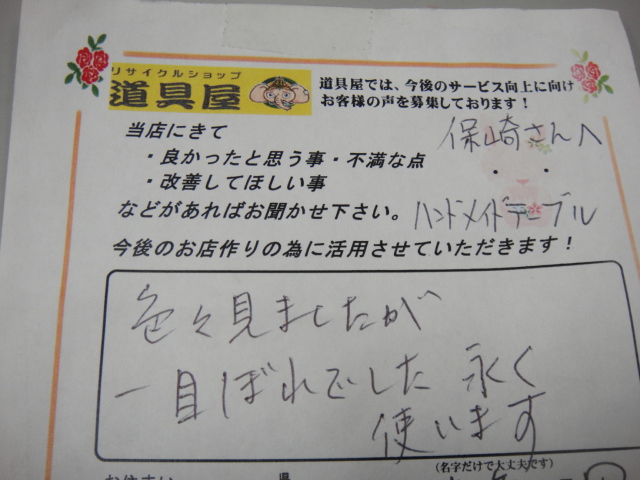 リサイクルショップ
道具屋
道具屋では、今後のサービス向上に向け
お客様の声を募集しております！
当店にきて
保崎さんへ
・良かったと思う事・不満な点
・改善してほしい事
などがあればお聞かせ下さい。
ハンドメイドテーブル
今後のお店作りの為に活用させていただきます！
色々見ましたが
一目ぼれでした 永く
使います
(名字だけで大丈夫です)
お住まい
県